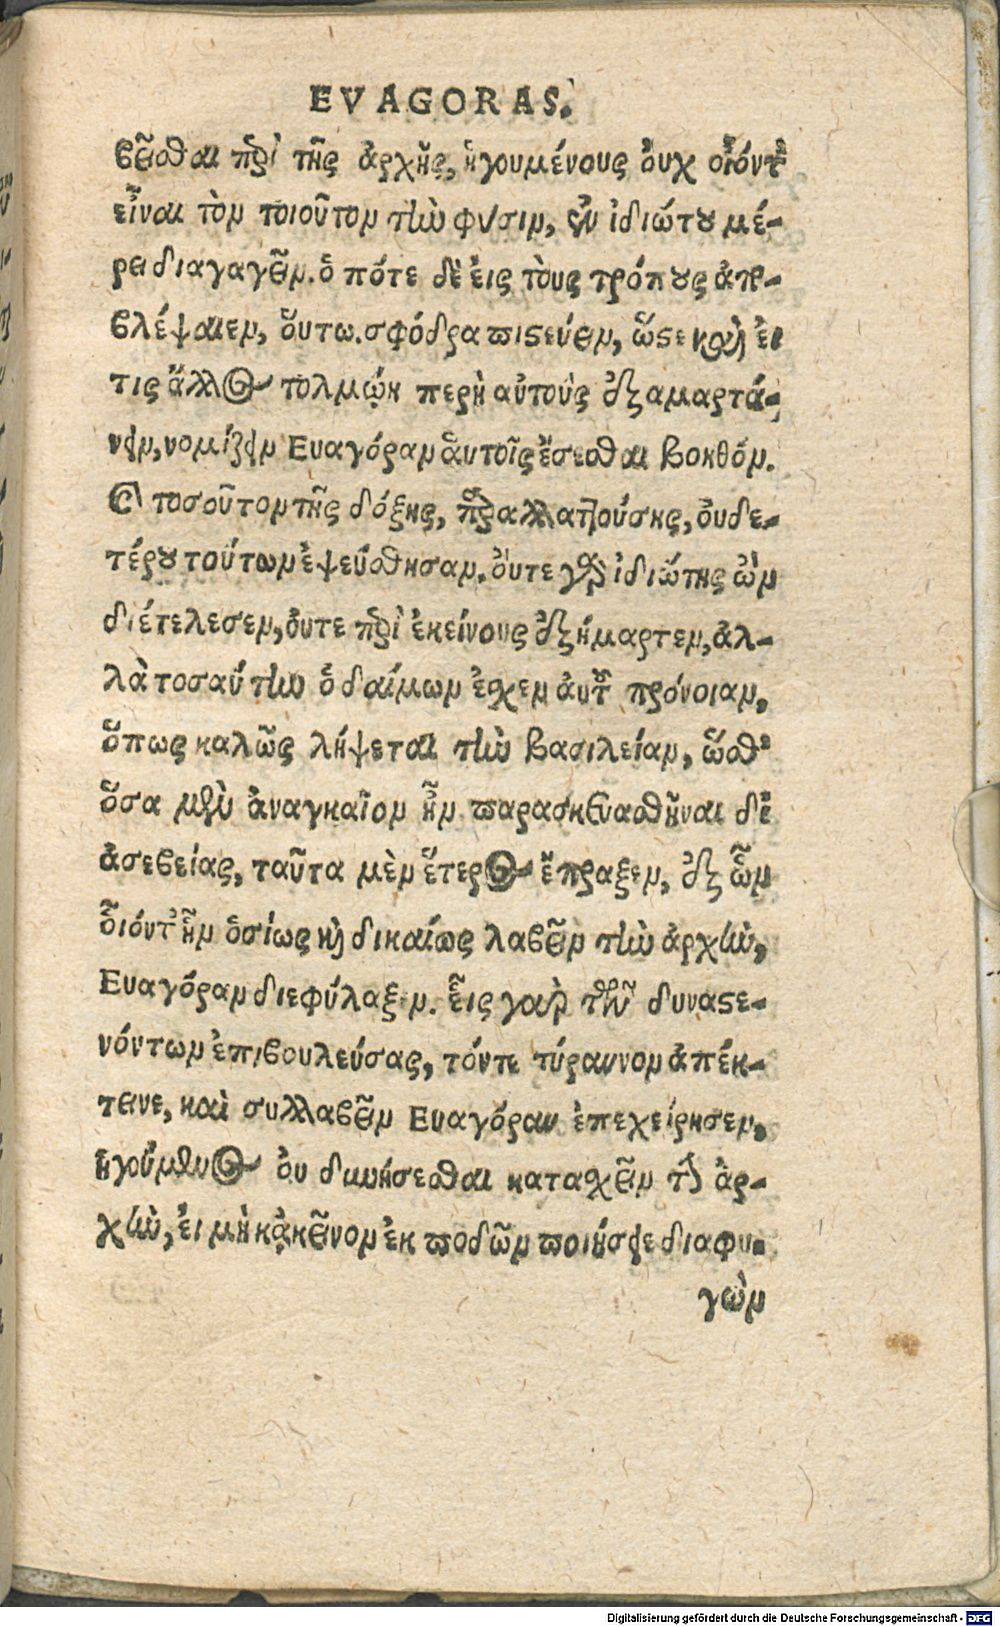 EVAGORAS.
βεῖσθαι περὶ τῆς ἀρχῆς, ἡγουμένους ὀυχ οἷόντ'
εἶναι τὸν τοιοῦτον τὴν φύσιν, ἐν ἰδιώτου μέ-
ρει διαγαγεῖν. ὁ πότε δὲ ἐις τοὺς τρόπους ἀπο-
βλέψαιεν, ὅυτω. σφόδρα πιστεύειν, ὥστε καὶ ἐι
τις ἄλλος τολμῴη περὴ αὐτοὺς ἐξαμαρτά-
νειν, νομίζειν Ευαγόραν ἁυτοῖς ἔσεσθαι βοηθόν.
Ϲ τοσοῦτον τῆς δόξης, παραλλαττούσης, ὀυδε-
τέρου τούτων ἐψεύσθησαν. ὄυτε γὰρ ἰδιώτης ὢν
διέτελεσεν, ὄυτε περὶ ἐκείνους ἐξήμαρτεν, ἀλ-
λὰ τοσαύτην ὁ δαίμων ἔσχεν ἀυτοῦ πρόνοιαν,
ὅπως καλῶς λήψεται τὴν βασιλείαν, ὥσθ'
ὅσα μὲν ἀναγκαῖον ἦν παρασκευασθῆναι δἰ
ἀσεβείας, ταῦτα μὲν ἕτερος ἔπραξεν, ἐξ ὧν
ὁιόντ' ἦν ὁσίως καὶ δικαίως λαβεῖν τὴν ἀρχὴν,
Ευαγόραν διεφύλαξεν. ἷεις γαὰρ τῶν δυναστε-
νόντων ἐπιβουλεύσας, τόντε τύραννον ἀπέκ-
τεινε, καὶ συλλαβεῖν Ευαγόραν ἐπεχείρησεν,
ἡγούμενος ὀυ δυνήσεσθαι κατασχεῖν τὴν ἀρ-
χὴν, ἐι μὴ κἀκεῖνον ἐκ ποδῶν ποιήσειε διαφυ-
γὼν
Digitalisierung gefördert durch die Deutsche Forschungsgemeinschaft - DFG